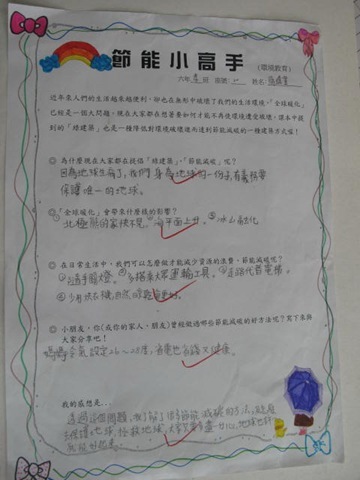 節能小高手
(環境教育)
六年 班 座號: 姓名:
近年來人們的生活越來越便利,卻也在無形中破壞了我們的生活環境,「全球暖化」
已經是一個大問題,現在大家都在想著要如何才能不再使環境遭受破壞,課本中提
到的「綠建築」也是一種降低對環境破壞進而達到節能減碳的一種建築方式喔!
◎ 為什麼現在大家都在提倡「綠建築」、「節能減碳」呢?
因為地球生病了,我們身為地球的一份子有義務要
保護唯一的地球。
◎ 「全球暖化」會帶來什麼樣的影響?
北極熊的家快不見 ②海平面上升。③冰山融化
◎ 在日常生活中,我們可以怎麼做才能減少資源的浪費,節能減碳呢?
①隨手關燈。②多搭乘大眾運輸工具。③走路代替電梯。
④少用洗衣機,自然
◎ 小朋友,你(或你的家人、朋友)曾經做過哪些節能減碳的好方法呢?寫下來與
大家分享吧!
媽媽冷氣設定26~28度,省電也省錢又健康。
我的感想是...
透過這個問題,我了解了很多節能減碳的方法,
保護地球,拯救地球,大家